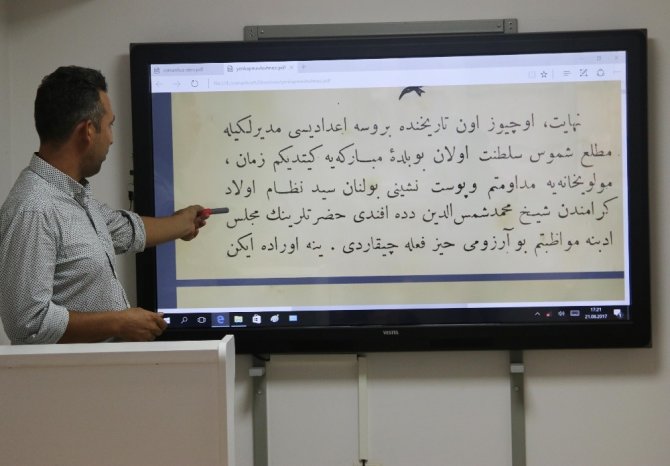 yenikapimevlevihnesi.pdf
نهایت، اوچیوز اون تاریخنده بروسه اعدادیسی مدیرلکیله
مطلع شموس سلطنت اولان بوبلدهٔ مبارکه‌یه کیتدیکم زمان ،
مولویخانه‌یه مداومتم وپوست نشینی بولنان سید نظام اولاد
کرامندن شیخ محمد شمس‌الدین دده افندی حضرتلرینك مجلس
ادبنه مواظبتم بو آرزومی حیز فعله چیقاردی . ینه اوراده ایکن
17:21
21.08.2017
VESTEL